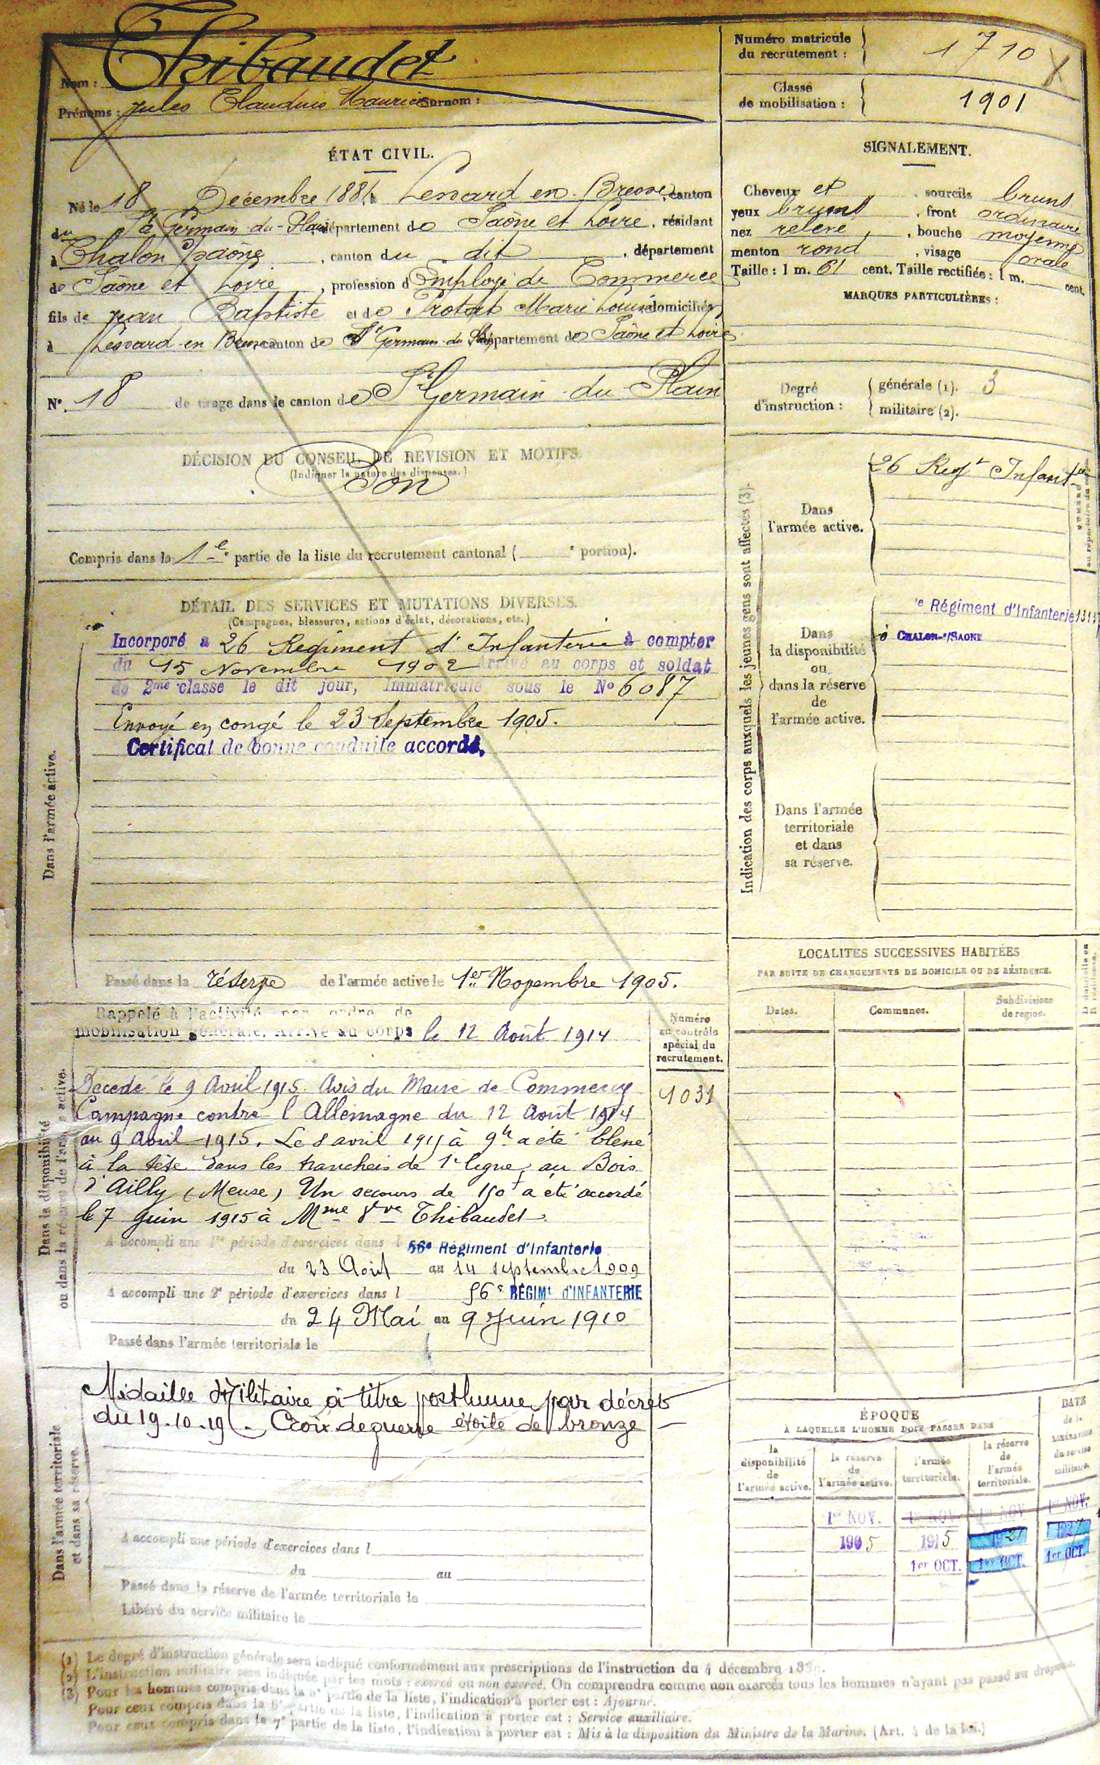 Nom : Thibaudet
Prénoms : Jules Claudius Maurice Surnom :
Numéro matricule du recrutement : 1710
Classe de mobilisation : 1901
ÉTAT CIVIL.
Né le 18 Décembre 1881, à Lessard en Bresse, canton
du St Germain-du-Plain, département de Saône et Loire, résidant
à Chalon s/Saône, canton du dit, département
de Saône et Loire, profession d'Employé de Commerce
fils de Jean Baptiste et de Protat Marie Louise domiciliés
à Lessard en Bresse canton de St Germain du Plain département de Saône et Loire
N° 18 de tirage dans le canton de St Germain-du-Plain
SIGNALEMENT.
Cheveux et , sourcils bruns
yeux bruns , front ordinaire
nez relevé , bouche moyenne
menton rond , visage ovale
Taille : 1 m. 61 cent. Taille rectifiée : 1 m. cent.
MARQUES PARTICULIÈRES :
Degré d'instruction : générale (1). 3
militaire (2).
DÉCISION DU CONSEIL DE REVISION ET MOTIFS.
(Indiquer la nature des dispenses.)
Bon
Compris dans la 1e partie de la liste du recrutement cantonal ( e portion).
DÉTAIL DES SERVICES ET MUTATIONS DIVERSES.
(Campagnes, blessures, actions d'éclat, décorations, etc.)
Dans l'armée active.
Incorporé a 26 Régiment d'Infanterie à compter
du 15 Novembre 1902 Arrivé au corps et soldat
de 2me classe le dit jour, Immatriculé sous le N° 6087
Envoyé en congé le 23 Septembre 1905.
Certificat de bonne conduite accordé,
Passé dans la réserve de l'armée active le 1er Novembre 1905.
Indication des corps auxquels les jeunes gens sont affectés (3).
Dans l'armée active.
26 Regt Infant
Dans la disponibilité ou dans la réserve de l'armée active.
e Régiment d'Infanterie
CHALON-s/SAONE
Dans l'armée territoriale et dans sa réserve.
LOCALITÉS SUCCESSIVES HABITÉES
PAR SUITE DE CHANGEMENTS DE DOMICILE OU DE RÉSIDENCE.
Dates. Communes. Subdivisions de région.
Dans la disponibilité ou dans la réserve de l'armée active.
Rappelé à l'activité par ordre de
mobilisation générale. Arrivé au corps le 12 Août 1914
Numéro au contrôle spécial du recrutement.
1031
Décédé le 9 Avril 1915. Avis du Maire de Commercy
Campagne contre l'Allemagne du 12 Août 1914
au 9 Avril 1915. Le 8 avril 1915 à 9h a été blessé
à la tête dans les tranchées de 1e ligne, au Bois
d'Ailly (Meuse) Un secours de 150f a été accordé
le 7 Juin 1915 à Mme Vve Thibaudet
A accompli une 1re période d'exercices dans l 56e Régiment d'Infanterie
du 23 Août au 14 septembre 1909
A accompli une 2e période d'exercices dans l 56e RÉGIMt d'INFANTERIE
du 24 Mai au 9 Juin 1910
Passé dans l'armée territoriale le
Dans l'armée territoriale et dans sa réserve.
Médaille Militaire à titre posthume par décret
du 19-10-19. - Croix de guerre étoile de bronze -
A accompli une période d'exercices dans l
du au
Passé dans la réserve de l'armée territoriale le
Libéré du service militaire le
ÉPOQUE
À LAQUELLE L'HOMME DOIT PASSER DANS
la disponibilité de l'armée active.
la réserve de l'armée active.
l'armée territoriale.
la réserve de l'armée territoriale.
DATE de la LIBÉRATION du service militaire.
1er NOV. 1er NOV. 1er NOV. 1er NOV.
1905 1915
1er OCT. 1er OCT. 1er OCT.
(1) Le degré d'instruction générale sera indiqué conformément aux prescriptions de l'instruction du 4 décembre
(2) L'instruction militaire sera indiquée par les mots : exercé ou non exercé. On comprendra comme non exercés tous les hommes n'ayant pas passé au drapeau.
(3) Pour les hommes compris dans la 5e partie de la liste, l'indication à porter est : Ajourné.
Pour ceux compris dans la 6e partie de la liste, l'indication à porter est : Service auxiliaire.
Pour ceux compris dans la 7e partie de la liste, l'indication à porter est : Mis à la disposition du Ministre de la Marine. (Art. 4 de la loi.)